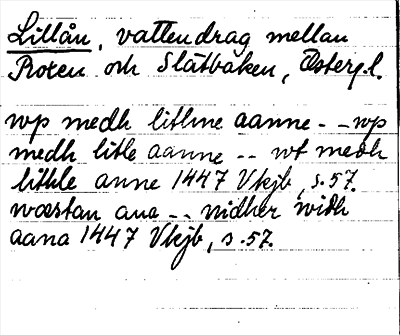 Lillån, vattendrag mellan
Roxen och Slätbaken, Östergl.
wp medh lithne aanne - - wp
medh litle aanne - - wt medh
lithle anne 1447 Vkjb, s. 57.
wæstan ana - - nidher widh
aana 1447 Vkjb, s. 57.